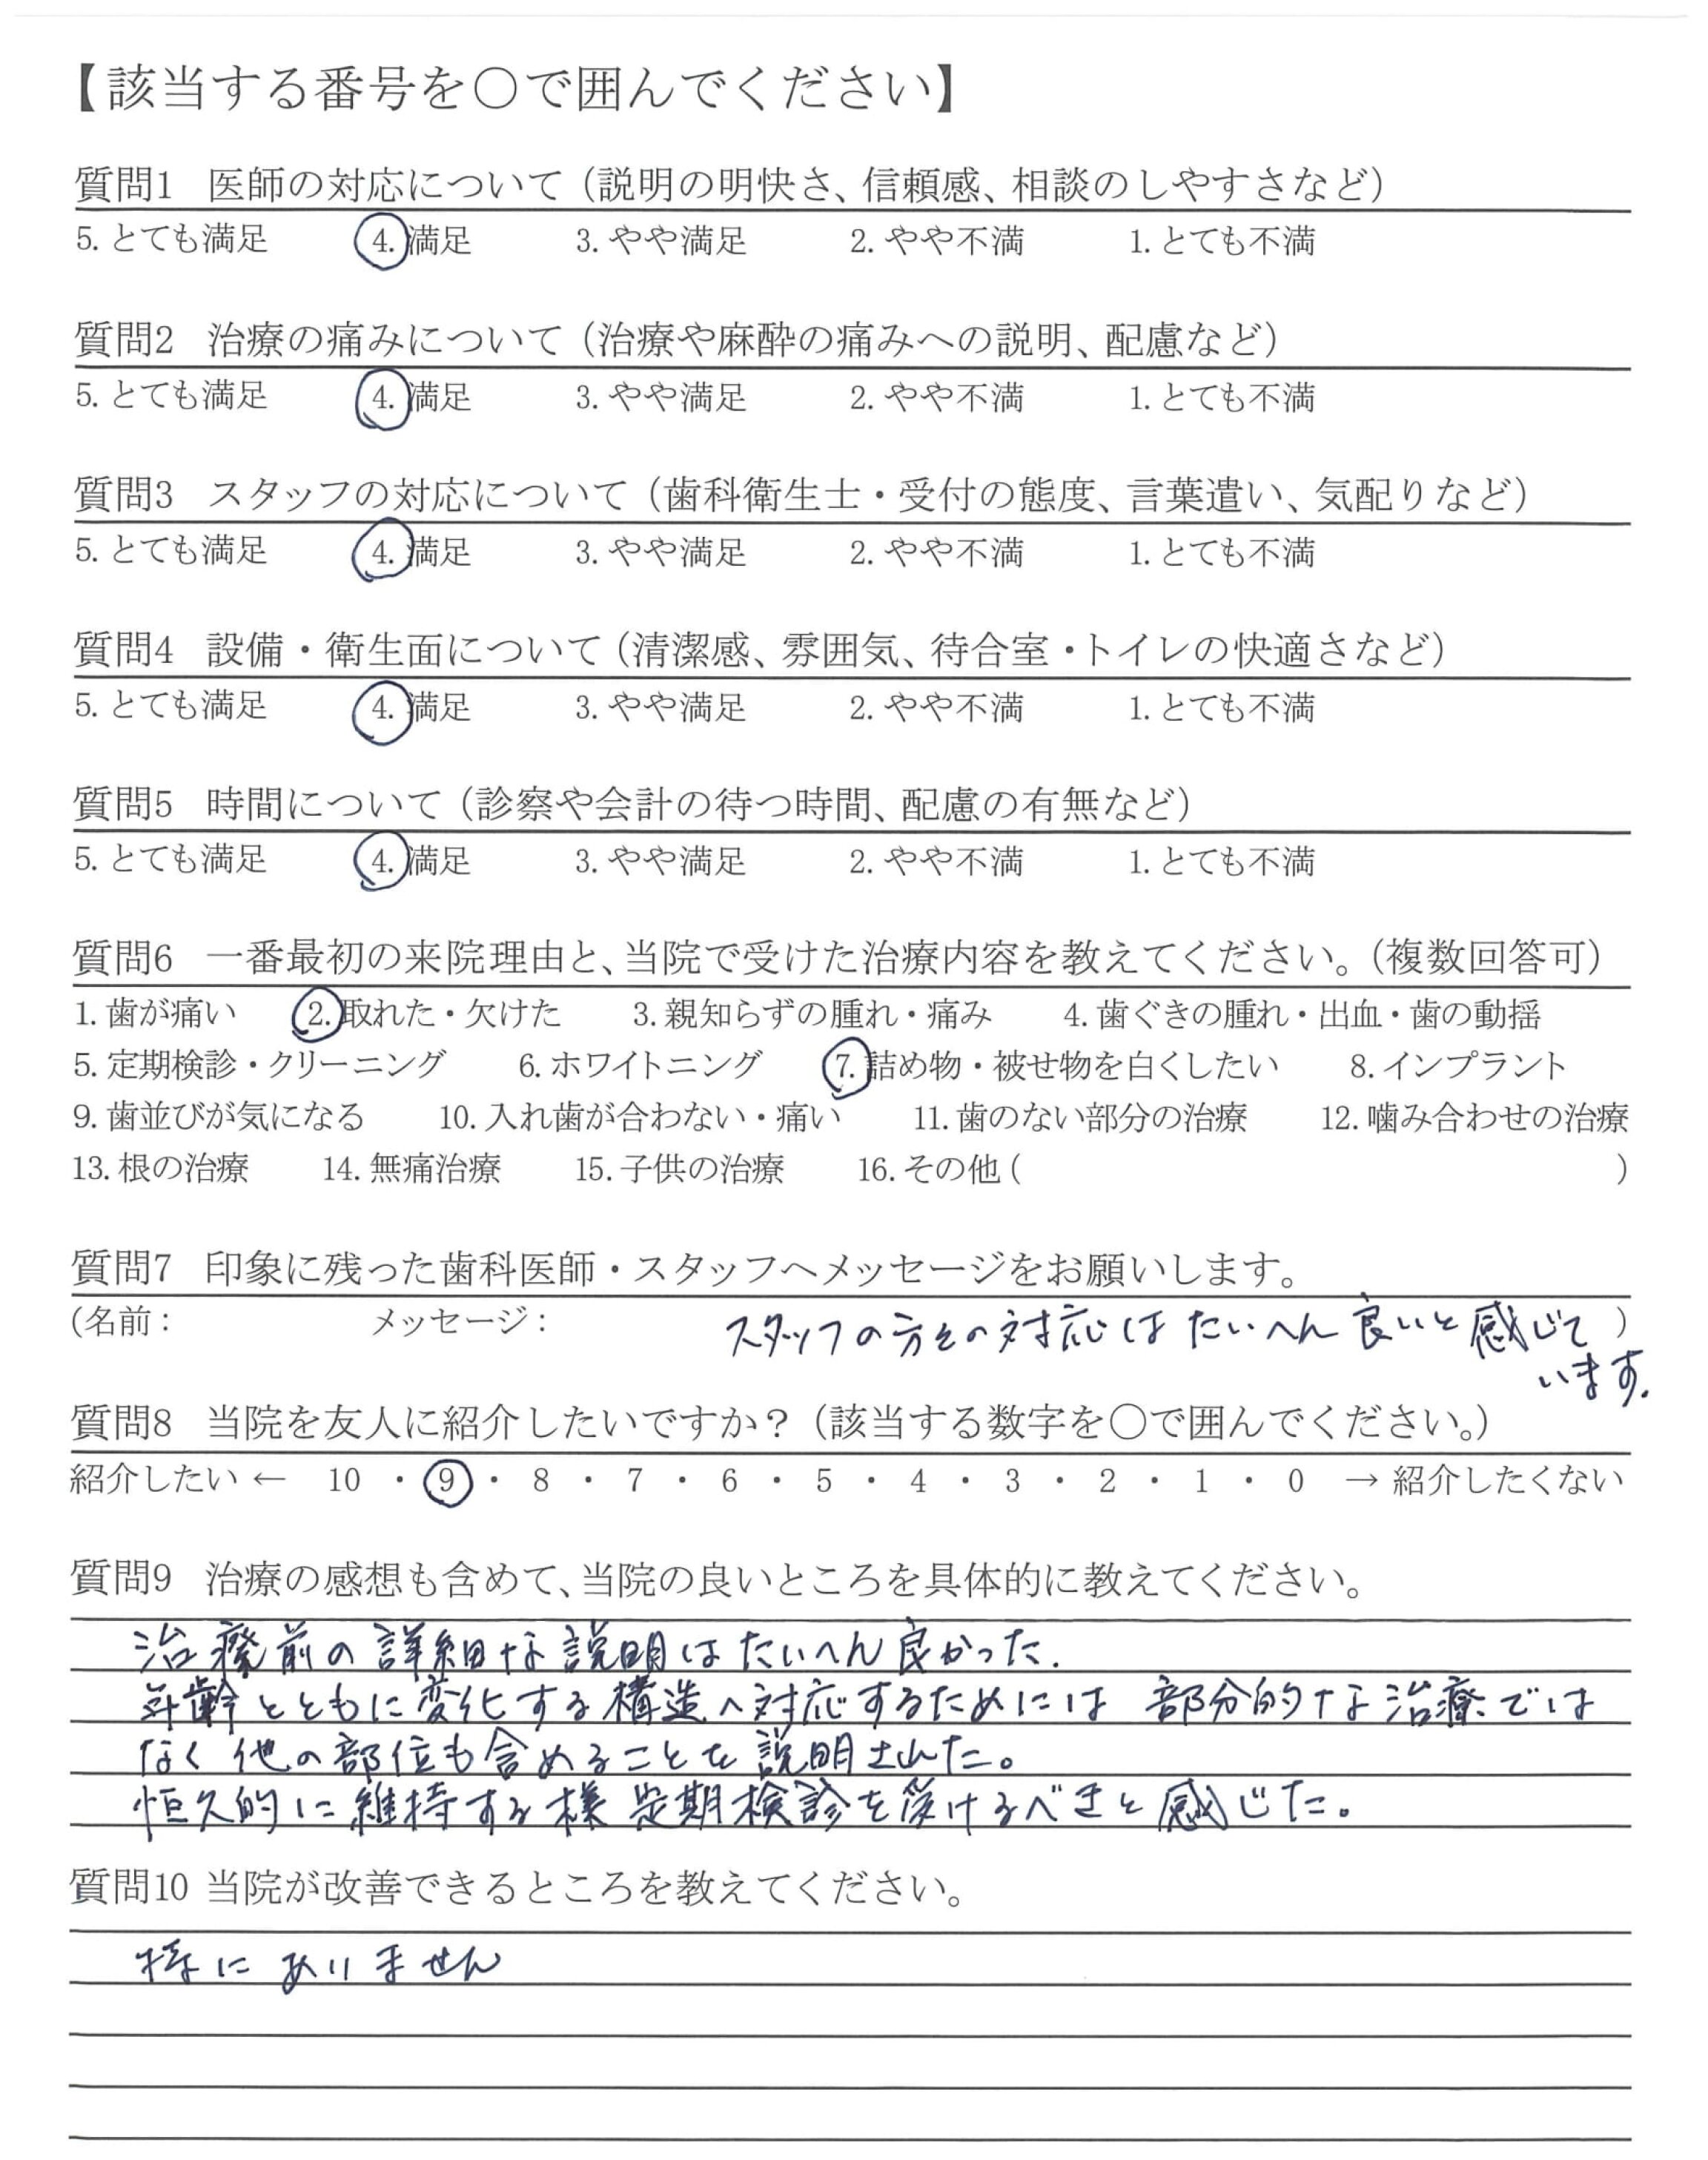 【該当する番号を〇で囲んでください】
質問1 医師の対応について（説明の明快さ、信頼感、相談のしやすさなど）
5. とても満足 4. 満足 3. やや満足 2. やや不満 1. とても不満
質問2 治療の痛みについて（治療や麻酔の痛みへの説明、配慮など）
5. とても満足 4. 満足 3. やや満足 2. やや不満 1. とても不満
質問3 スタッフの対応について（歯科衛生士・受付の態度、言葉遣い、気配りなど）
5. とても満足 4. 満足 3. やや満足 2. やや不満 1. とても不満
質問4 設備・衛生面について（清潔感、雰囲気、待合室・トイレの快適さなど）
5. とても満足 4. 満足 3. やや満足 2. やや不満 1. とても不満
質問5 時間について（診察や会計の待つ時間、配慮の有無など）
5. とても満足 4. 満足 3. やや満足 2. やや不満 1. とても不満
質問6 一番最初の来院理由と、当院で受けた治療内容を教えてください。（複数回答可）
1. 歯が痛い 2. 取れた・欠けた 3. 親知らずの腫れ・痛み 4. 歯ぐきの腫れ・出血・歯の動揺
5. 定期検診・クリーニング 6. ホワイトニング 7. 詰め物・被せ物を白くしたい 8. インプラント
9. 歯並びが気になる 10. 入れ歯が合わない・痛い 11. 歯のない部分の治療 12. 噛み合わせの治療
13. 根の治療 14. 無痛治療 15. 子供の治療 16. その他 ( )
質問7 印象に残った歯科医師・スタッフへメッセージをお願いします。
(名前： メッセージ： スタッフの方々の対応はたいへん良いと感じて )
います.
質問8 当院を友人に紹介したいですか？（該当する数字を〇で囲んでください。）
紹介したい ← 10 ・ 9 ・ 8 ・ 7 ・ 6 ・ 5 ・ 4 ・ 3 ・ 2 ・ 1 ・ 0 → 紹介したくない
質問9 治療の感想も含めて、当院の良いところを具体的に教えてください。
治療前の詳細な説明はたいへん良かった.
年齢とともに変化する構造へ対応するためには 部分的な治療では
なく 他の部位も含めることを説明された。
恒久的に維持する様 定期検診を受けるべきと感じた。
質問10 当院が改善できるところを教えてください。
特にありません